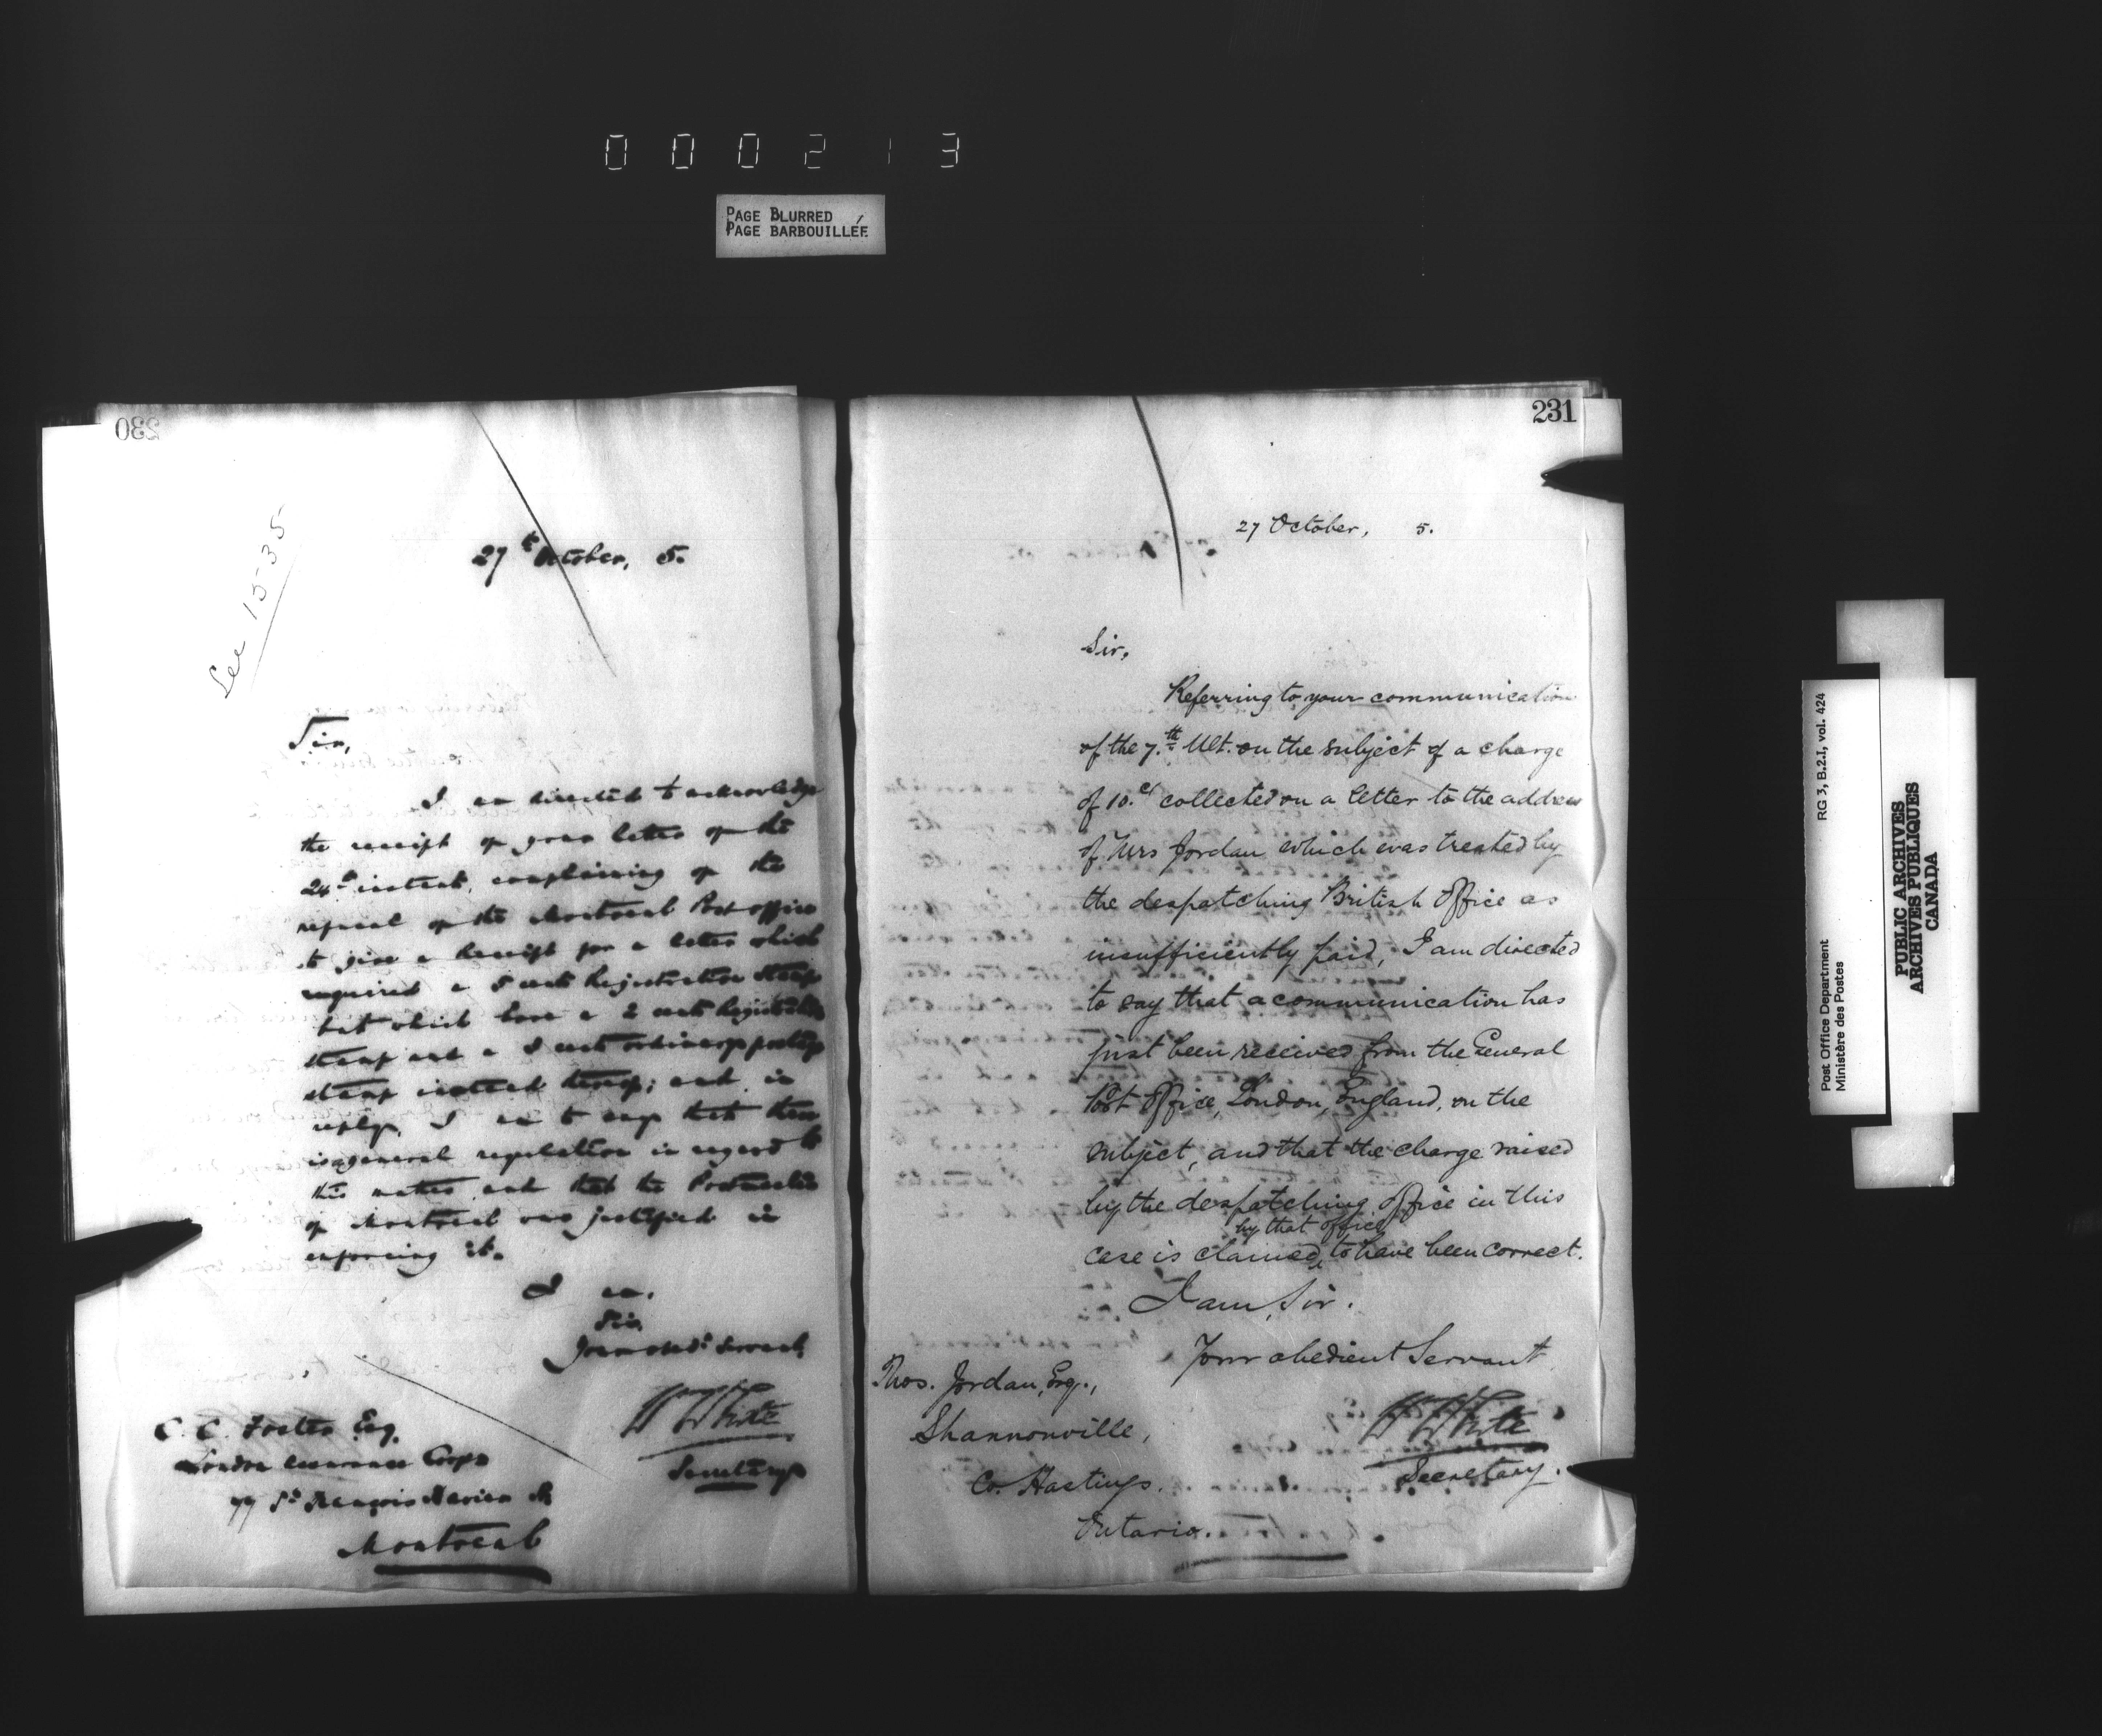 000213
PAGE BLURRED
PAGE BARBOUILLÉE
230
See 1535
27th October, 5.
Sir,
I am directed to acknowledge
the receipt of your letter of the
24th instant, complaining of the
refusal of the Montreal Post office
to give a Receipt for a letter which
required a 5 cent Registration Stamp
but which bore a 2 cent Registration
stamp and a 3 cent ordinary postage
stamp instead thereof; and, in
reply, I am to say that there
is a general regulation in regard to
this matter and that the Postmaster
of Montreal was justified in
enforcing it.
I am,
Sir,
Your obedt. Servant,
W White
Secretary
C. C. Foster Esq.
London Assurance Corpn
77 St. François Xavier St
Montreal
231
27 October, 5.
Sir,
Referring to your communication
of the 7.th Ult. on the subject of a charge
of 10.c/ collected on a letter to the address
of Mrs Jordan which was treated by
the despatching British Office as
insufficiently paid, I am directed
to say that a communication has
just been received from the General
Post Office, London, England, on the
subject, and that the charge raised
by the despatching office in this
case is claimed by that office to have been correct.
I am, Sir.
Your obedient Servant
W White
Secretary.
Thos. Jordan, Esq.,
Shannonville,
Co. Hastings.
Ontario.
RG 3, B.2.I, vol. 424
Post Office Department
Ministère des Postes
PUBLIC ARCHIVES
ARCHIVES PUBLIQUES
CANADA